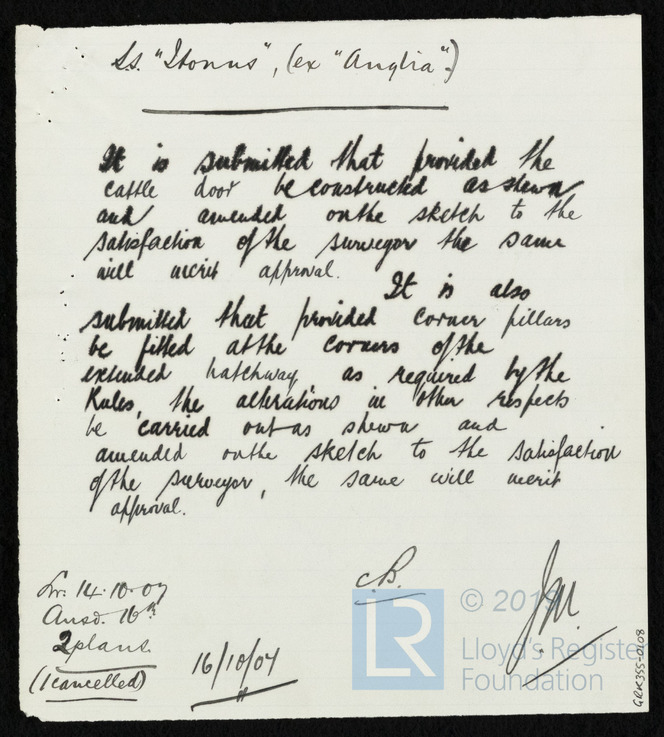 S.s. "Itonus", (ex "Anglia".)
It is submitted that provided the
cattle door be constructed as shewn
and amended on the sketch to the
satisfaction of the surveyor the same
will merit approval.
It is also
submitted that provided corner pillars
be fitted at the corners of the
extended hatchway as required by the
Rules, the alterations in other respects
be carried out as shewn and
amended on the sketch to the satisfaction
of the surveyor, the same will merit
approval.
C.B.
J.M.
Lr: 14.10.07
Ansd. 16th
2 plans.
(1 cancelled)
16/10/07
LR
© 201
Lloyd's Register
Foundation
GRK355-0108